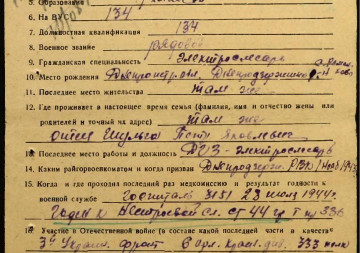 5. Образование
6. На ВУСО 134
7. Должностная квалификация 134
8. Военное звание рядовой
9. Гражданская специальность Электрослесарь
10. Место рождения Днепропетров.
11. Последнее место жительства Там же
12. Где проживает в настоящее время семья (фамилия, имя и отчество жены или
родителей и точный их адрес) Там же
отец Петр
13. Последнее место работы и должность электрослесарь
14. Каким райгорвоенкоматом и когда призван РВК
15. Когда и где проходил последний раз медкомиссию и результат годности к
военной службе Госпиталь 3151 23 июля 1944г.
Годен к строевой сл. ст 44 гр I пр 336
16. Участие в Отечественной войне (в составе какой последней части и в качестве
3й Украин. фронт 333 полк